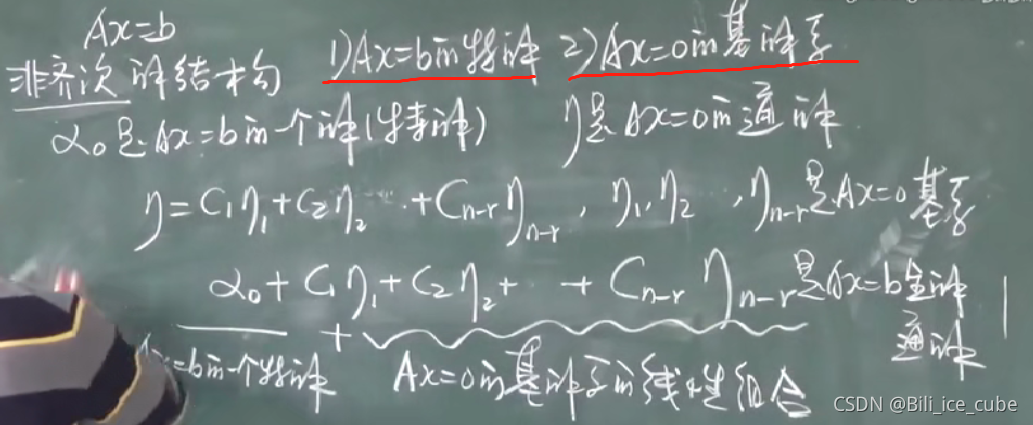 Ax=b
非齐次 解结构
1) Ax=b的特解 2) Ax=0的基解系
α₀是Ax=b的一个解(特解) η是Ax=0的通解
η=C₁η₁+C₂η₂ ··+Cₙ₋ᵣηₙ₋ᵣ, η₁,η₂ ,ηₙ₋ᵣ是Ax=0基系
α₀+C₁η₁+C₂η₂+ · +Cₙ₋ᵣ ηₙ₋ᵣ是Ax=b全解
通解
+
Ax=b的一个特解 Ax=0的基解系的线性组合
CSDN @Bili_ice_cube